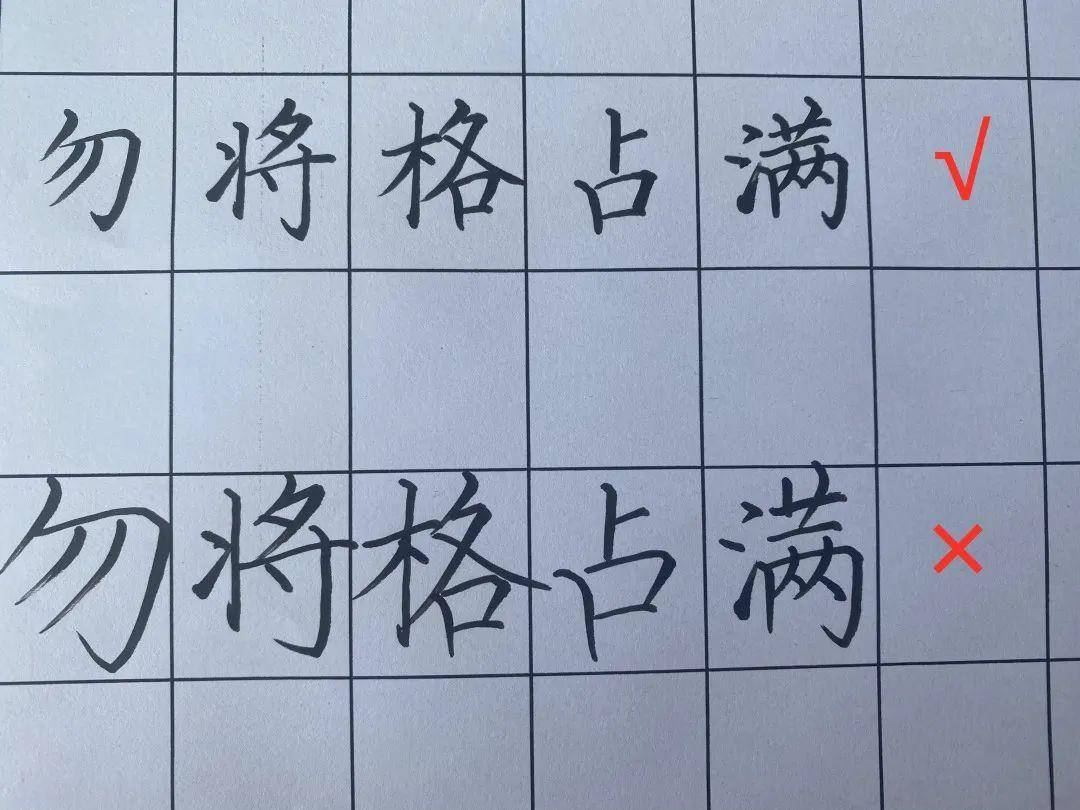 勿将格占满 √
勿将格占满 ×